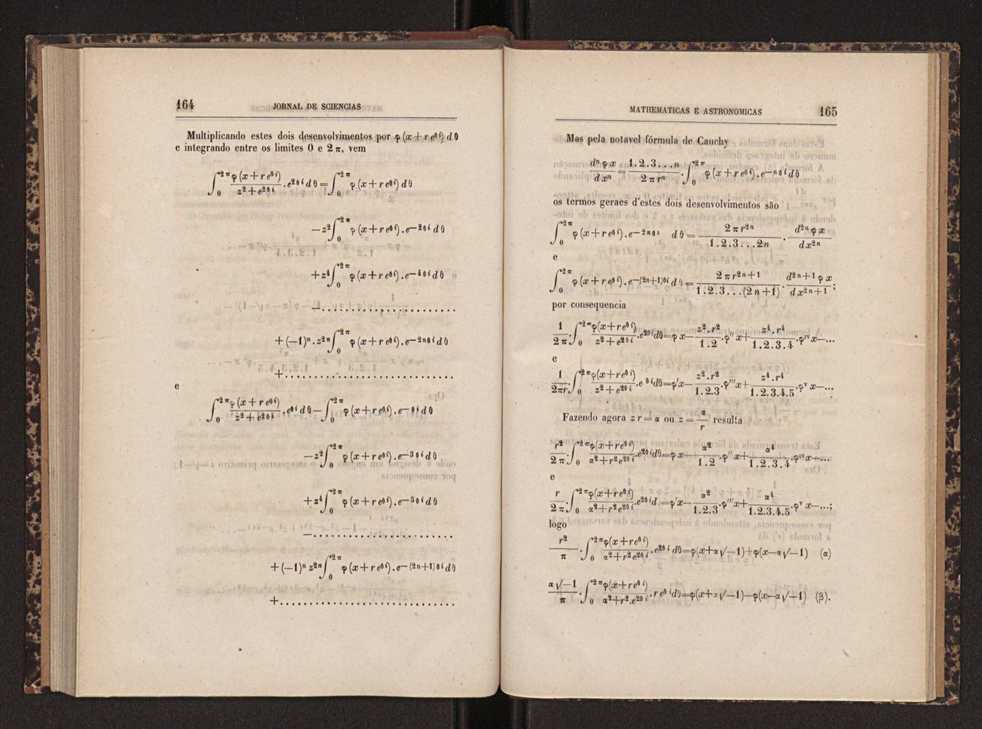 164 JORNAL DE SCIENCIAS
Multiplicando estes dois desenvolvimentos por φ(x+re^{θi})dθ
e integrando entre os limites 0 e 2π, vem
∫_0^{2π} φ(x+re^{θi})/(z²+e^{2θi}) . e^{2θi} dθ = ∫_0^{2π} φ(x+re^{θi}) dθ
−z² ∫_0^{2π} φ(x+re^{θi}).e^{−2θi} dθ
+z⁴ ∫_0^{2π} φ(x+re^{θi}).e^{−4θi} dθ
−........................
+(−1)ⁿ.z^{2n} ∫_0^{2π} φ(x+re^{θi}).e^{−2nθi} dθ
+............................
e
∫_0^{2π} φ(x+re^{θi})/(z²+e^{2θi}) . e^{θi} dθ − ∫_0^{2π} φ(x+re^{θi}).e^{−θi} dθ
−z² ∫_0^{2π} φ(x+re^{θi}).e^{−3θi} dθ
+z⁴ ∫_0^{2π} φ(x+re^{θi}).e^{−5θi} dθ
−........................
+(−1)ⁿ z^{2n} ∫_0^{2π} φ(x+re^{θi}).e^{−(2n+1)θi} dθ
+.............................
MATHEMATICAS E ASTRONOMICAS 165
Mas pela notavel fórmula de Cauchy
dⁿφx/dxⁿ = 1.2.3...n/2πrⁿ . ∫_0^{2π} φ(x+re^{θi}).e^{−nθi} dθ
os termos geraes d'estes dois desenvolvimentos são
∫_0^{2π} φ(x+re^{θi}).e^{−2nθi} dθ = 2πr^{2n}/1.2.3...2n . d^{2n}φx/dx^{2n}
e
∫_0^{2π} φ(x+re^{θi}).e^{−(2n+1)θi} dθ = 2πr^{2n+1}/1.2.3...(2n+1) . d^{2n+1}φx/dx^{2n+1};
por consequencia
1/2π . ∫_0^{2π} φ(x+re^{θi})/(z²+e^{2θi}) . e^{2θi} dθ = φx − z².r²/1.2 . φ''x + z⁴.r⁴/1.2.3.4 . φ^{IV}x − ...
e
1/2πr . ∫_0^{2π} φ(x+re^{θi})/(z²+e^{2θi}) . e^{θi} dθ = φ'x − z².r²/1.2.3 . φ'''x + z⁴.r⁴/1.2.3.4.5 . φ^{v}x − ...
Fazendo agora zr = α ou z = α/r resulta
r²/2π . ∫_0^{2π} φ(x+re^{θi})/(α²+r²e^{2θi}) . e^{2θi} dθ = φx − α²/1.2 . φ''x + α⁴/1.2.3.4 . φ^{IV}x − ...
e
r/2π . ∫_0^{2π} φ(x+re^{θi})/(α²+r²e^{2θi}) . e^{θi} dθ = φ'x − α²/1.2.3 . φ'''x + α⁴/1.2.3.4.5 . φ^{v}x − ...;
logo
r²/π . ∫_0^{2π} φ(x+re^{θi})/(α²+r²e^{2θi}) . e^{2θi} dθ = φ(x+α√−1)+φ(x−α√−1) (α)
α√−1/π . ∫_0^{2π} φ(x+re^{θi})/(α²+r².e^{2θi}) . re^{θi} dθ = φ(x+α√−1)−φ(x−α√−1) (β).